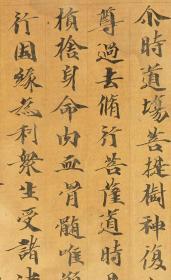 尒時道場菩提樹神復
尊過去脩行菩薩道時具
損捨身命肉血骨髓唯願
行因緣為利衆生受諸